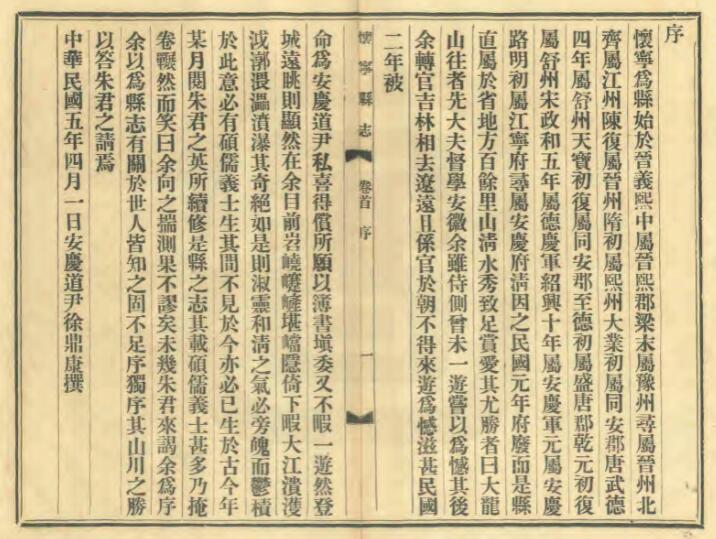 序
懷寧爲縣始於晉義熙中屬晉熙郡梁末屬豫州尋屬晉州北
齊屬江州陳復屬晉州隋初屬熙州大業初屬同安郡唐武德
四年屬舒州天寶初復屬同安郡至德初屬盛唐郡乾元初復
屬舒州宋政和五年屬德慶軍紹興十年屬安慶軍元屬安慶
路明初屬江寧府尋屬安慶府淸因之民國元年府廢而是縣
直屬於省地方百餘里山淸水秀致足賞愛其尤勝者曰大龍
山往者先大夫督學安徽余雖侍側曾未一遊嘗以爲憾其後
余轉官吉林相去遼遠且係官於朝不得來遊爲憾滋甚民國
二年被
懷寧縣志
卷首 序
一
命爲安慶道尹私喜得償所願以簿書塡委又不暇一遊然登
城遠眺則顯然在余目前岩嶢㠔嵼堪㟅隱倚下瞰大江潰濩
泧漷渨㵽濆瀑其奇絕如是則淑靈和淸之气必旁魄而鬱積
於此意必有碩儒義士生其間不見於今亦必已生於古今年
某月閱朱君之英所續修是縣之志其載碩儒義士甚多乃掩
卷冁然而笑曰余向之揣測果不謬矣未幾朱君來謁余爲序
余以爲縣志有關於世人皆知之固不足序獨序其山川之勝
以答朱君之請焉
中華民國五年四月一日安慶道尹徐鼎康撰